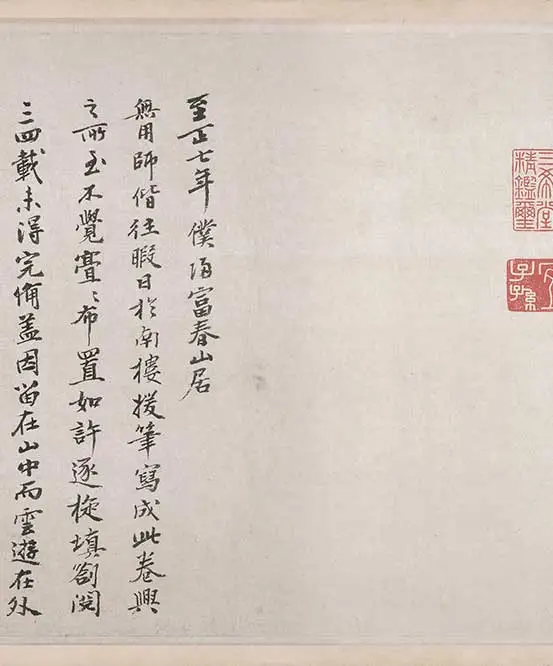 三希堂
精鑑璽
宜
子孫
至正七年僕歸富春山居
無用師偕往暇日於南樓援筆寫成此卷興
之所至不覺亹〻布置如許逐旋填劄閱
三四載未得完備盖因留在山中而雲遊在外